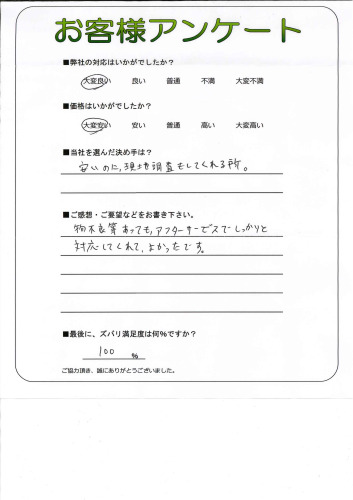 お客様アンケート
■弊社の対応はいかがでしたか？
大変良い 良い 普通 不満 大変不満
■価格はいかがでしたか？
大変安い 安い 普通 高い 大変高い
■当社を選んだ決め手は？
安いのに、現地調査もしてくれる所。
■ご感想・ご要望などをお書き下さい。
あっても、アフターサービスでしっかりと
対応してくれて、よかったです。
■最後に、ズバリ満足度は何%ですか？
100 %
ご協力頂き、誠にありがとうございました。